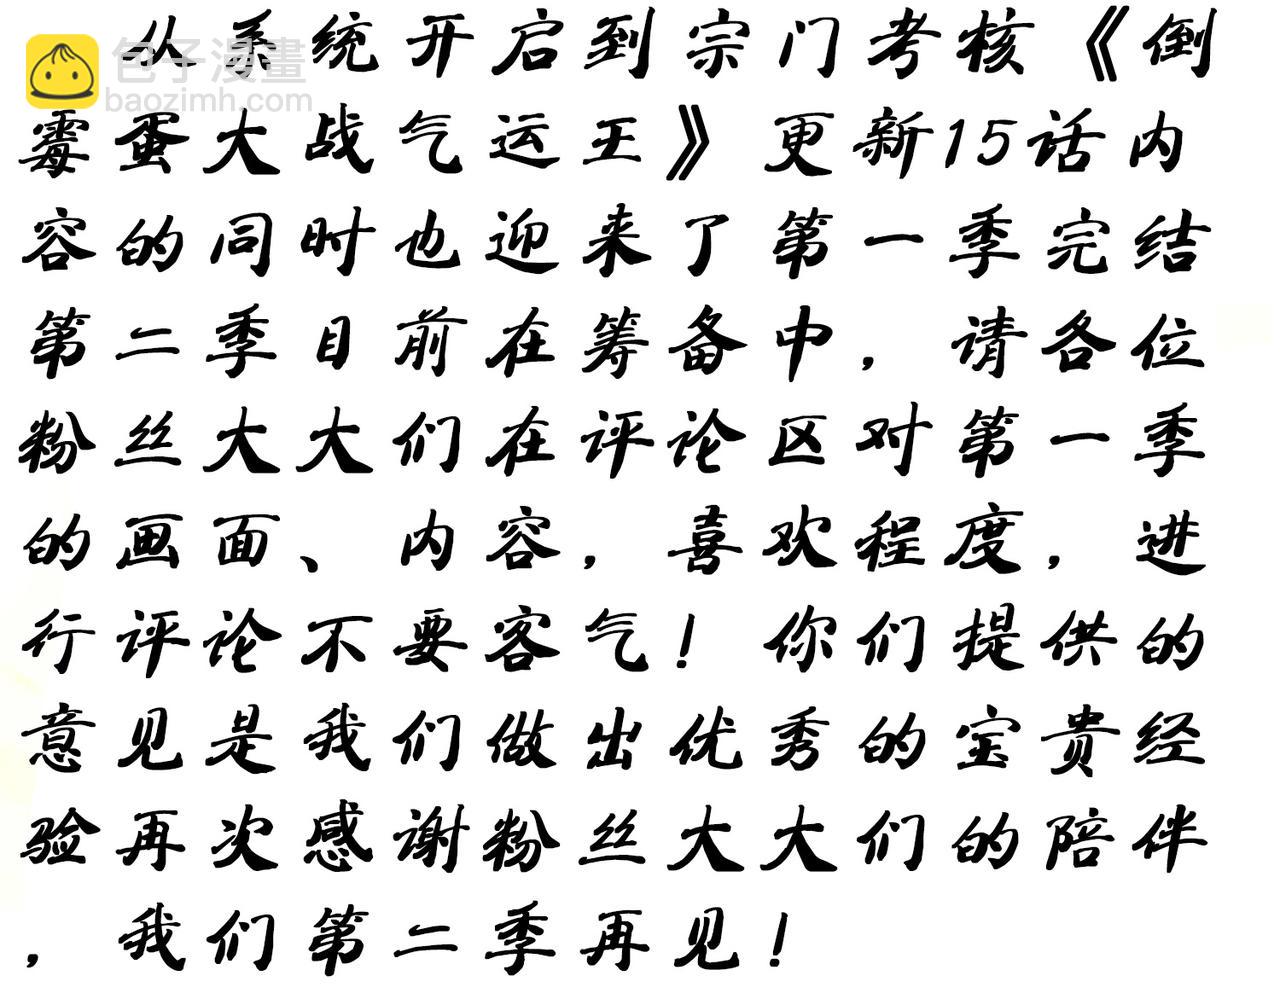 从系统开启到宗门考核《倒
包子漫畫
baozimh.com
霉蛋大战气运王》更新15话内
容的同时也迎来了第一季完结
第二季目前在筹备中，请各位
粉丝大大们在评论区对第一季
的画面、内容，喜欢程度，进
行评论不要客气！你们提供的
意见是我们做出优秀的宝贵经
验再次感谢粉丝大大们的陪伴
，我们第二季再见！